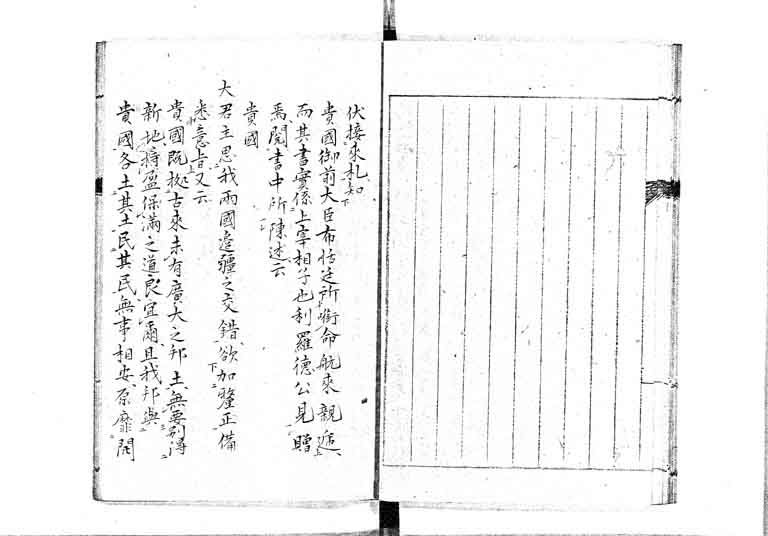 伏接來札知
貴國御前大臣布恬廷所銜命航來親遞
而其書實係上宰相子也利羅德公見贈
焉閱書中所陳述云
貴國
大君主思我兩國邊疆之交錯欲加釐正備
悉意旨又云
貴國既據古來未有廣大之邦土無要別得
新地持盈保滿之道良宜爾且我邦與
貴國各土其土民其民無事相安原靡開